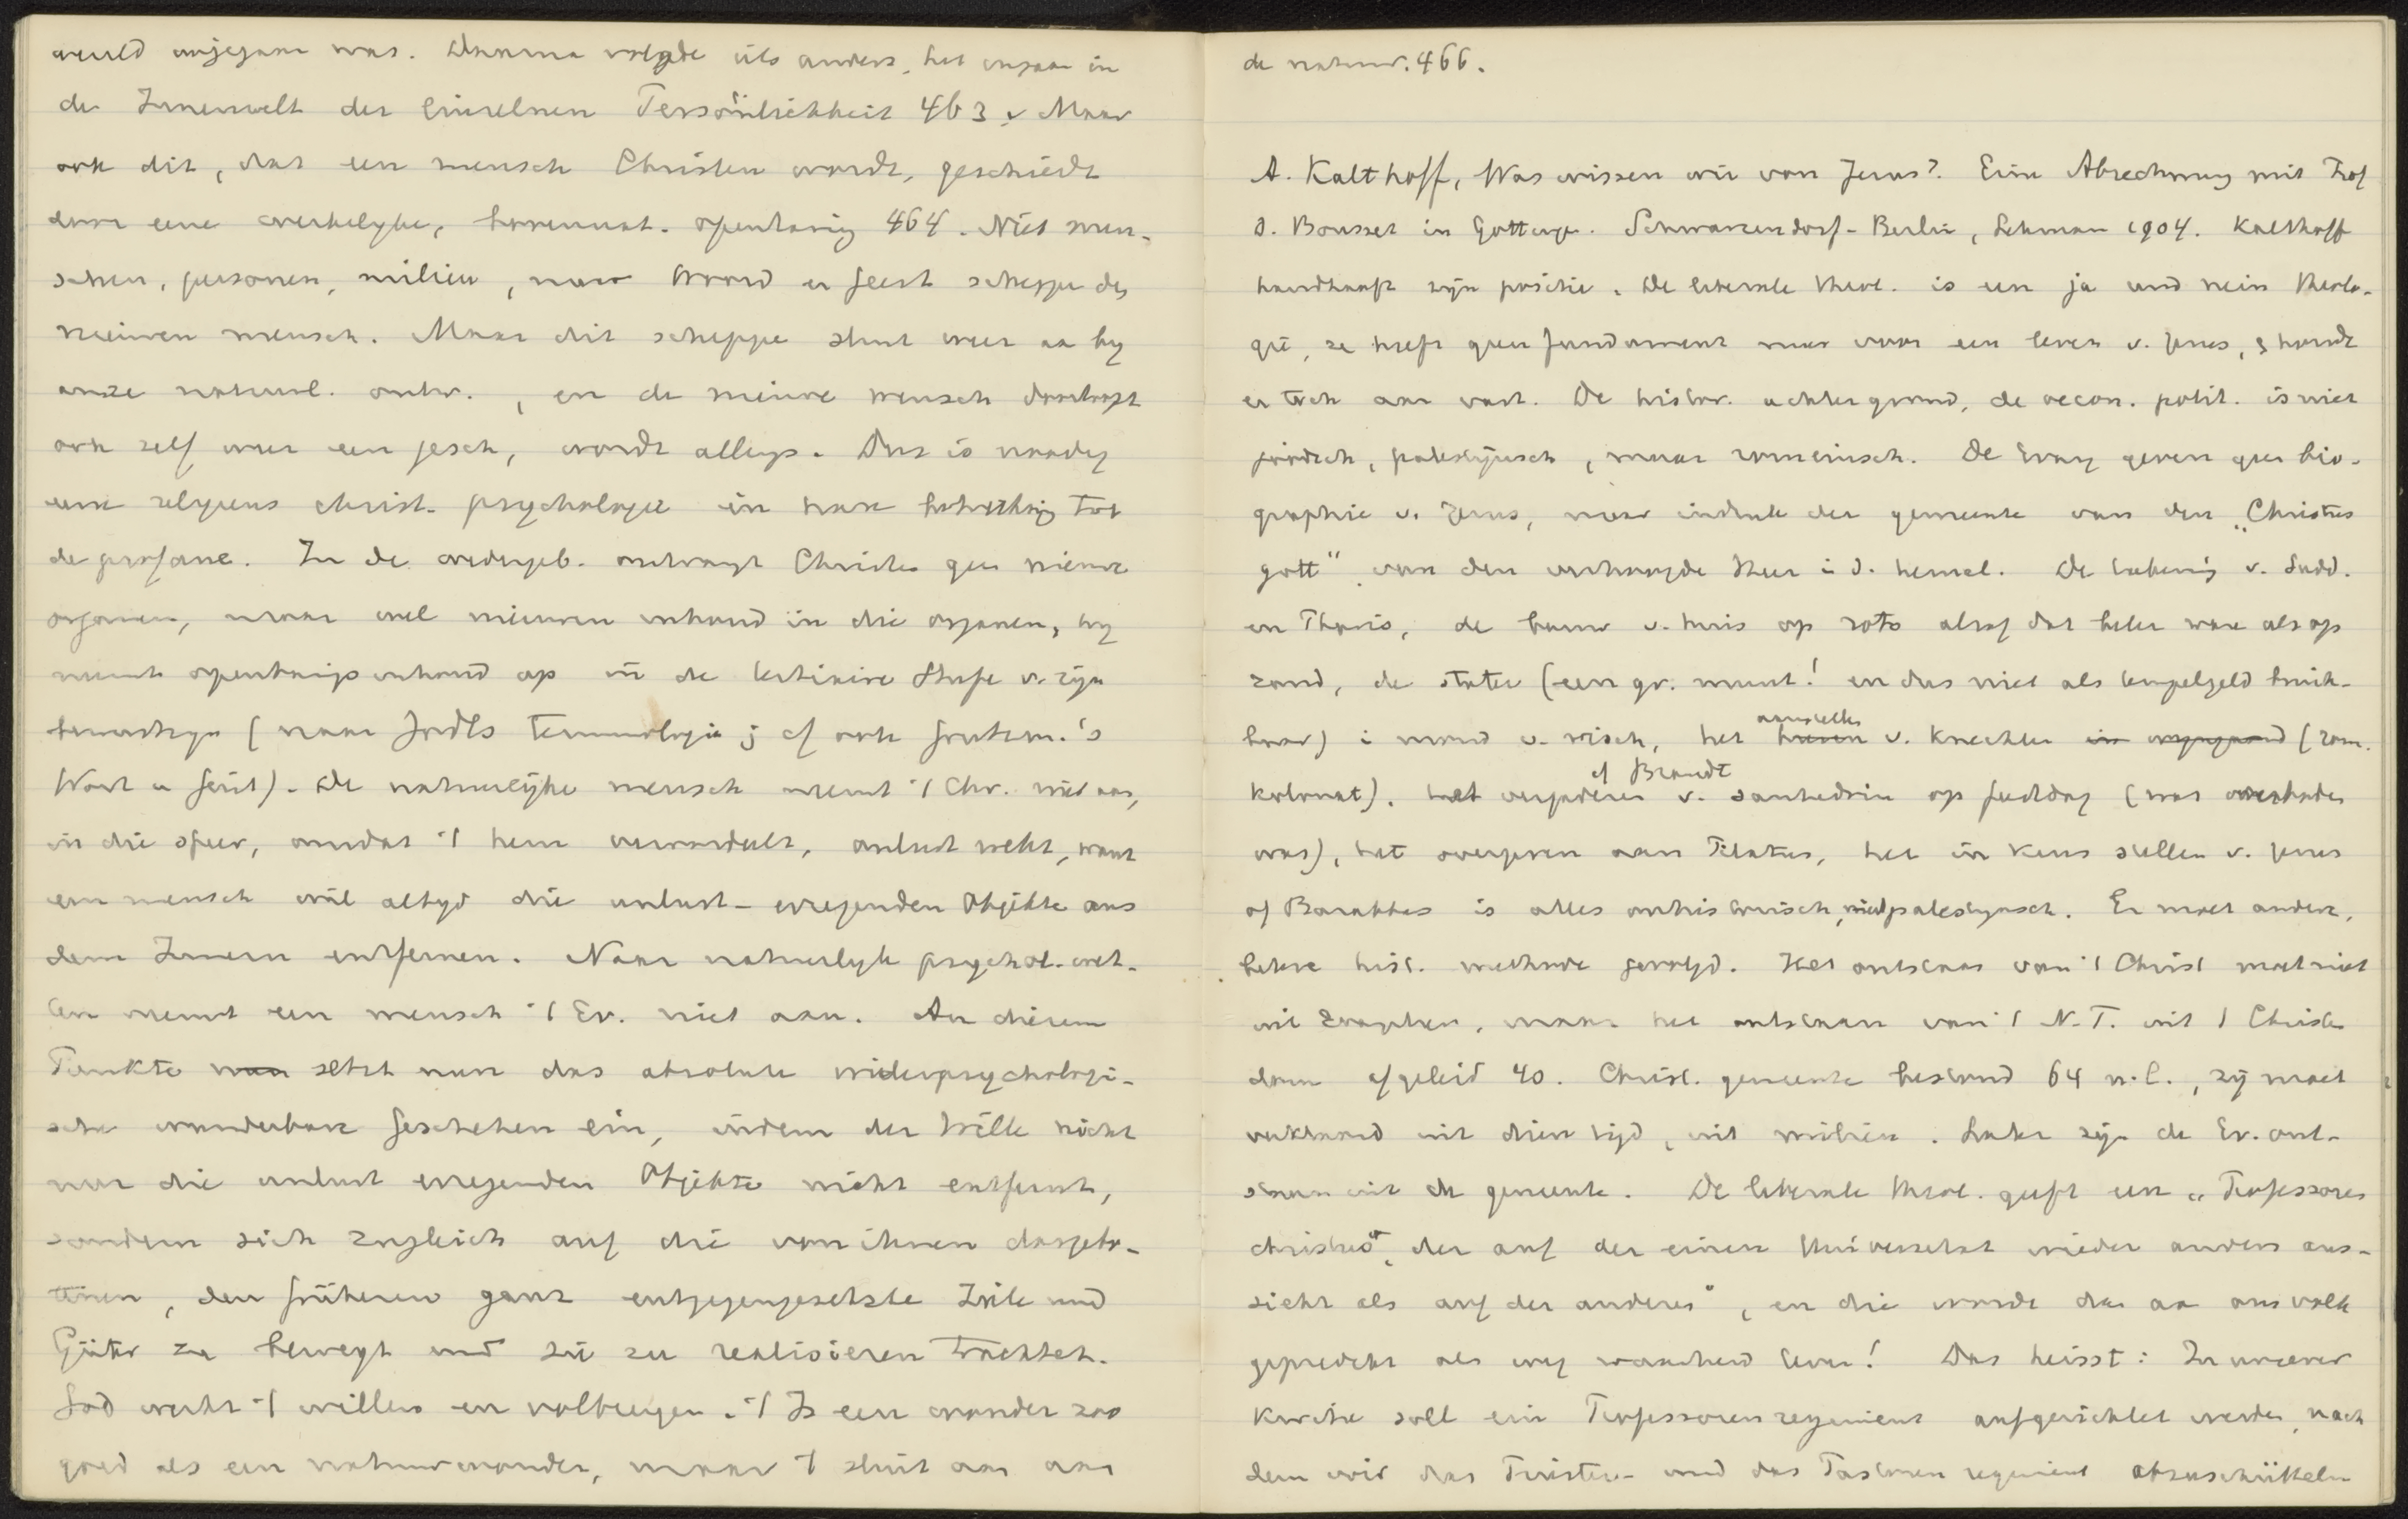 wereld ingegaan was. Daarna volgde iets anders, het ingaan in
de Innenwelt der einzelnen Persönlichkeit 463. Maar
ook dit, dat een mensch Christen wordt, geschiedt
door eene werkelyke, bovennat. openbaring 464. Niet men-
schen, personen, milieu, maar Woord en Geest scheppe den
nieuwen mensch. Maar dit scheppe sluit weer aa by
onze natuurl. ontw., en de nieuwe mensch doorloopt
ook zelf weer een gesch, wordt allengs. Dus is noodig
eene religieus christ. psychologie in hare betrekking tot
de profane. In de wedergeb. ontvangt Christen geen nieuwe
organen, maar wel nieuwen inhoud in die organen, hy
neemt openbaringsinhoud op in de tertiaire Stufe v. zyn
bewustzyn (naar Jodls terminologie; cf ook Grützm.'s
Wort u Geist). De natuurlijke mensch neemt 't Chr. niet aan,
in die sfeer, omdat 't hem veroordeelt, onlust wekt, want
een mensch wil altyd die unlust-erregenden Objekte aus
dem Innern entfernen. Naar natuurlyke psychol. wet-
ten neemt een mensch 't Ev. niet aan. An diesem
Punkte setzt nun das absolute widerpsychologi-
sche wunderbare Geschehen ein, indem der Wille nicht
nur die unlust erregenden Objekte nicht entfernt,
sondern sich zugleich auf die von ihnen dargebo-
tenen, den früheren ganz entgegengesetzte Ziele und
Güter zu bewegt und sie zu realisieren trachtet.
God werkt 't willen en volbrengen. 't Is een wonder zoo
goed als een natuurwonder, maar 't sluit aan aan
de natuur. 466.
A. Kalthoff, Was wissen wir von Jesus? Eine Abrechnung mit Prof
D. Bousset in Gottinge. Schmargendorf-Berlin, Lehman 1904. Kalthoff
handhaaft zijn positie. De liberale theol. is een ja und nein theolo-
gie, ze heeft geen fundament meer voor een leven v. Jesus, & houdt
er toch aan vast. De histor. achtergrond, de oecon. polit. is niet
joodsch, palestijnsch, maar romeinsch. De Evang geven geen bio-
graphie v. Jesus, maar der gemeente van den "Christus
gott", van den verhoogde Heer i d. hemel. De v. Sadd.
en Phariz, de bouw v. huis op rots alsof dat beter ware als op
zand, de stater (een gr. munt! en dus niet als tempelgeld bruik-
baar) i mond v. visch, het aanstellen v. knechten (rom.
kolonat). het vergaderen v. sanhedrin op feestdag cf Brandt (wat verboden
was), het overgeven aan Pilatus, het in keus stellen v. Jesus
of Barabbas is alles onhistorisch, niet palestynsch. Er moet andere,
betere hist. methode gevolgd. Het ontstaan van 't Christ moet niet
uit Evangeliën, maar het ontstaan van 't N.T. uit 't Christen
dom afgeleid 40. Christ. gemeente bestond 64 n.C., zij moet
verklaard uit dien tijd, uit milieu. Later zijn de Ev. ont-
staan uit de gemeente. De liberale theol. geeft een "Professoren
christus", der auf der einen Universität wieder anders aus-
sieht als auf der anderen", en die wordt dan aan ons volk
gepredikt als weg waarheid leven! Das heisst: In unserer
Kirche soll ein Professorenregiment aufgerichtet werden, nach
dem wir das Priester- und das Pastoren regiment abzuschütteln